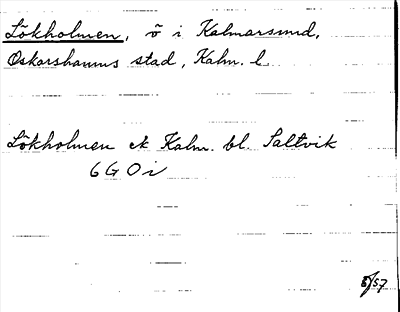 Lökholmen, ö i Kalmarsund,
Oskarshamns stad, Kalm. l.
Lökholmen ek Kalm. bl. Saltvik
6 G 0 i
8/57